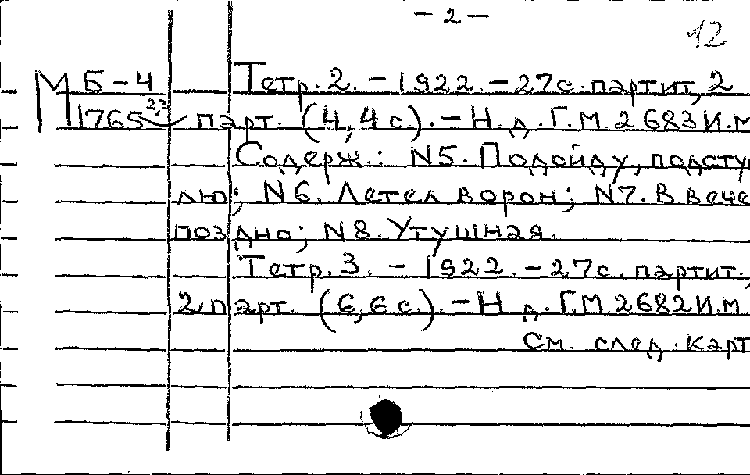 – 2 –
12
М Б – 4 Тетр. 2. – 1922. – 27с. партит, 2
1765 2,3 парт. (4,4 с). – Н. д. Г.М 2683И.м
Содерж.: N5. Подойду, подсту
лю; N6. Летел ворон; N7. В вече
поздно; N8. Утушная.
Тетр. 3. – 1922. – 27с. партит,
2 парт. (6,6 с.) – Н д. Г.М 2682И.м
См. след. карт